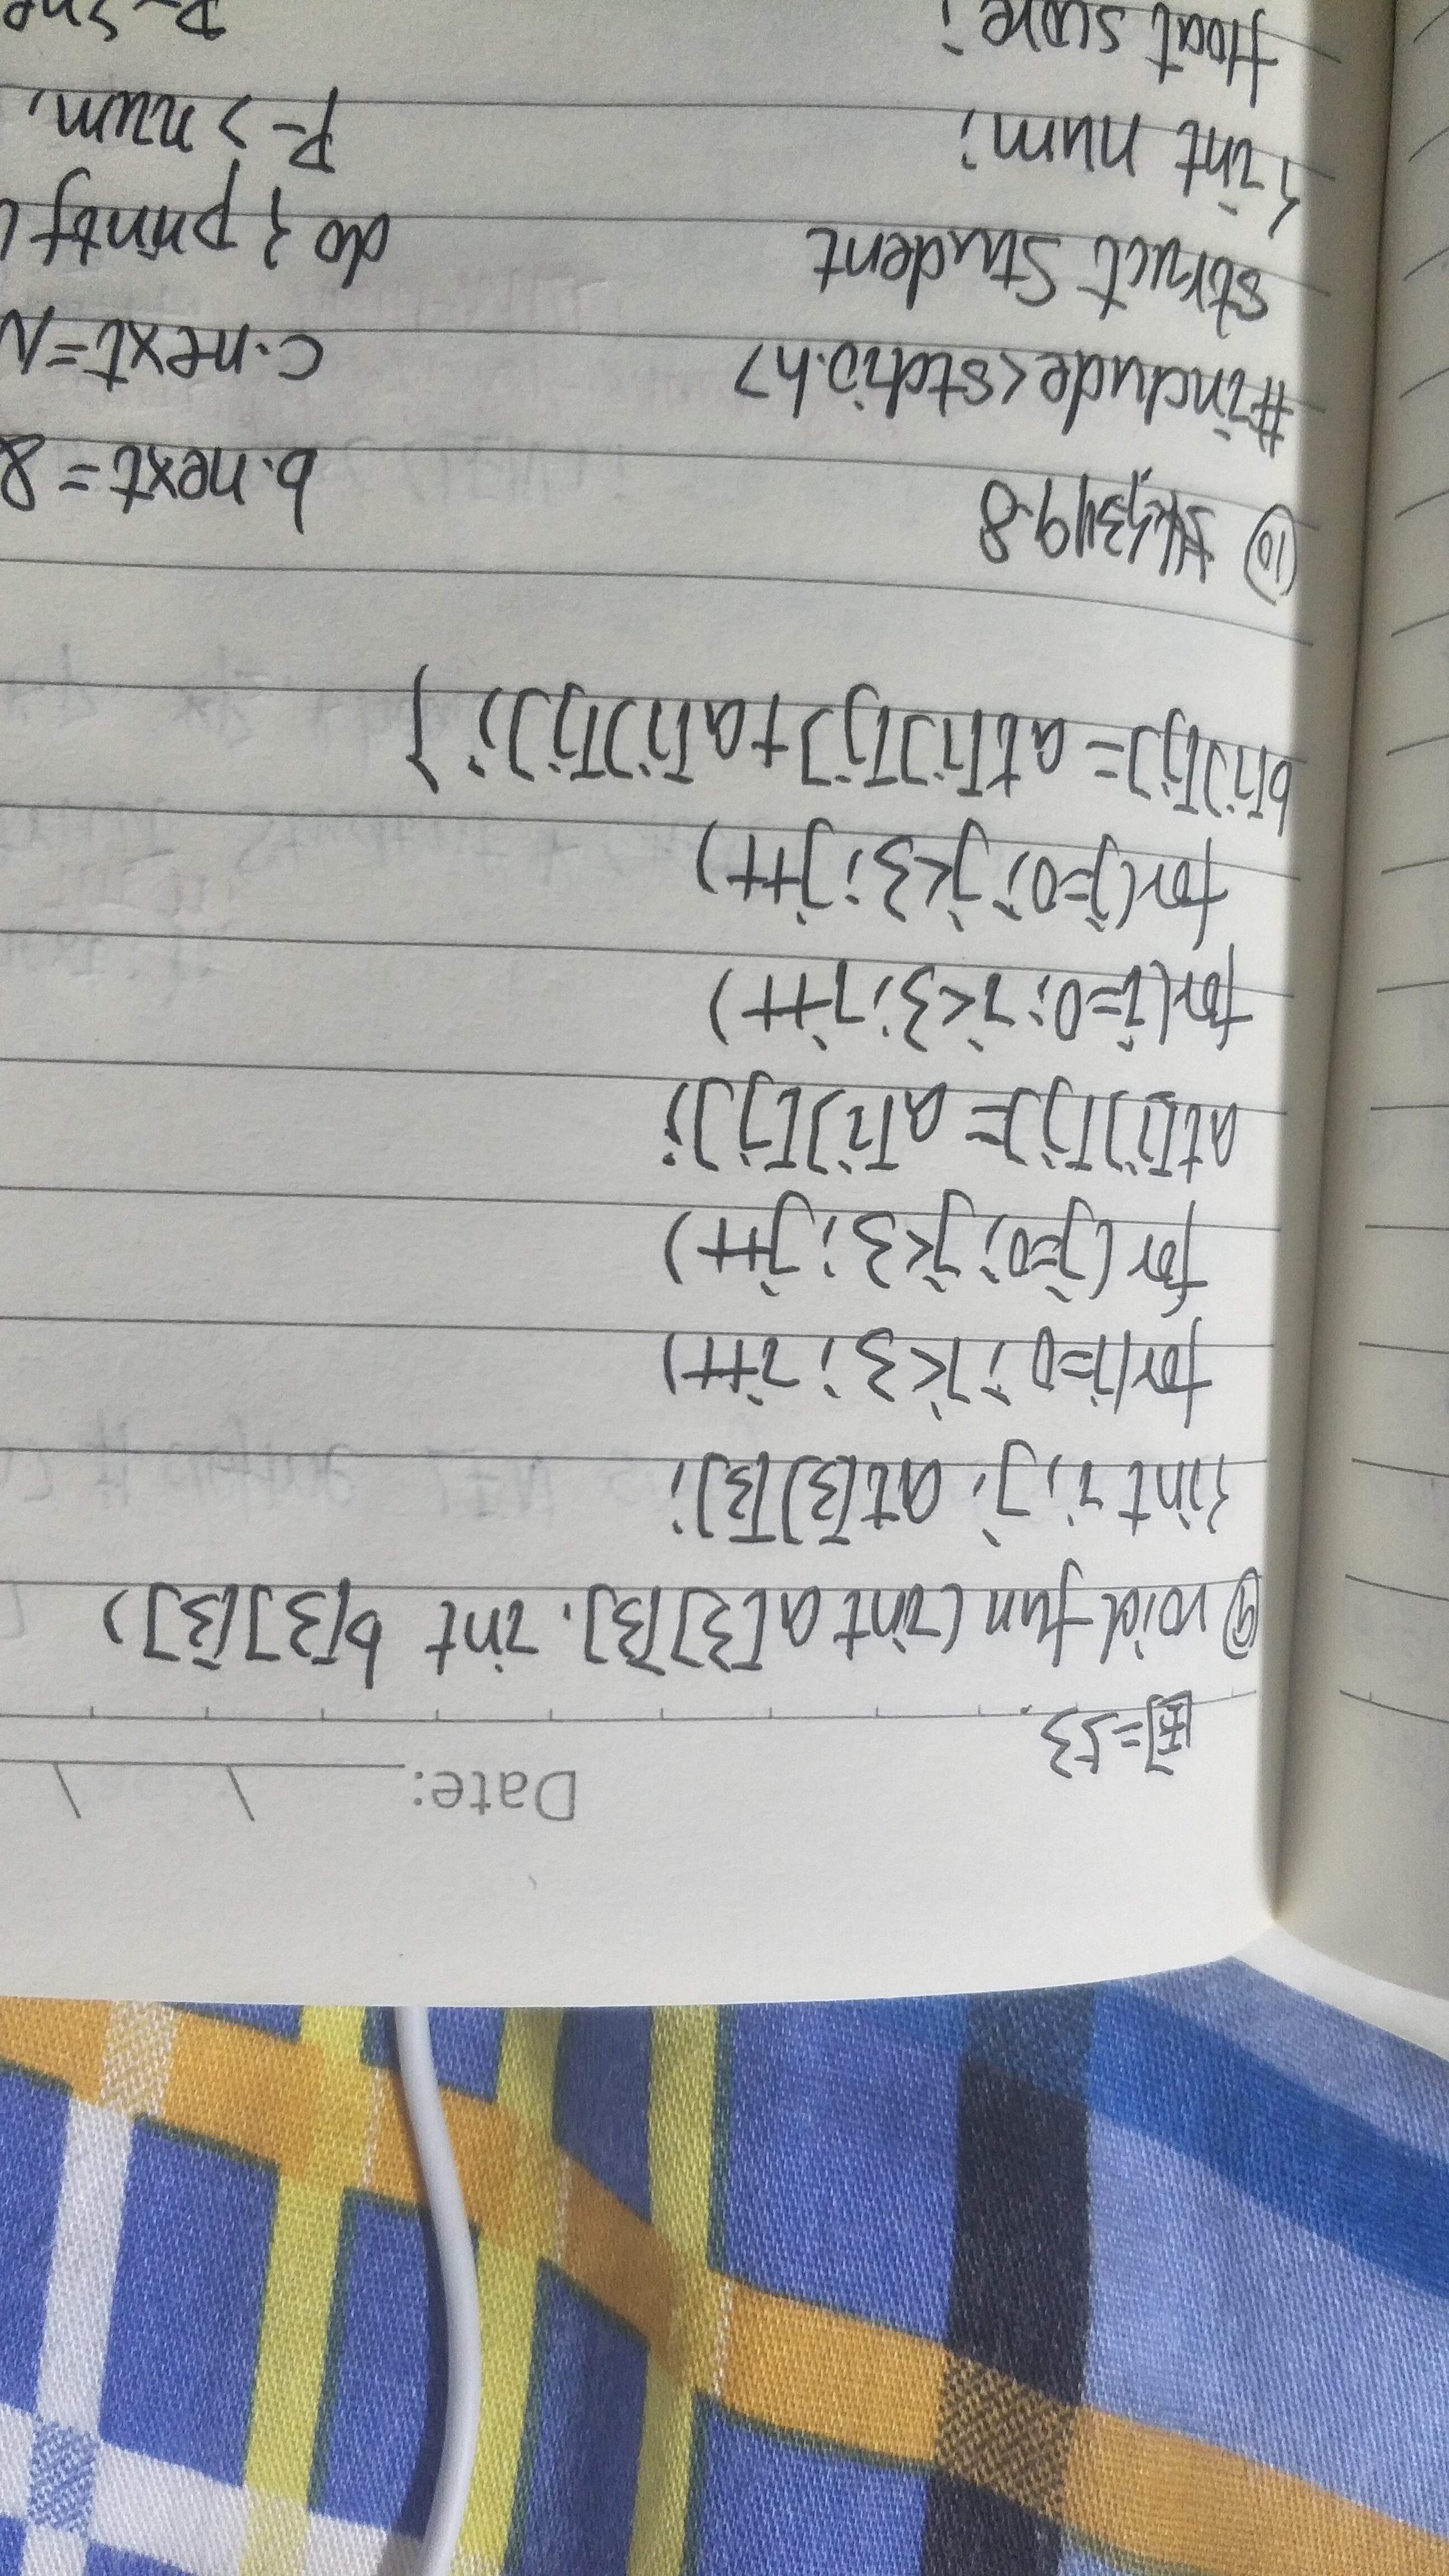 Date:
国=53.
⑨ void fun (int a[3][3], int b[3][3])
{int i, j, at[3][3];
for(i=0; i<3; i++)
for (j=0; j<3; j++)
at[i][j]= a[i][j];
for(i=0; i<3; i++)
for(j=0; j<3; j++)
b[i][j]= at[i][j]+a[i][j]; }
⑩ 9.8
#include<stdio.h>
struct Student
{int num;
float score;
b.next= &
c.next=N
do { printf (
P->num,